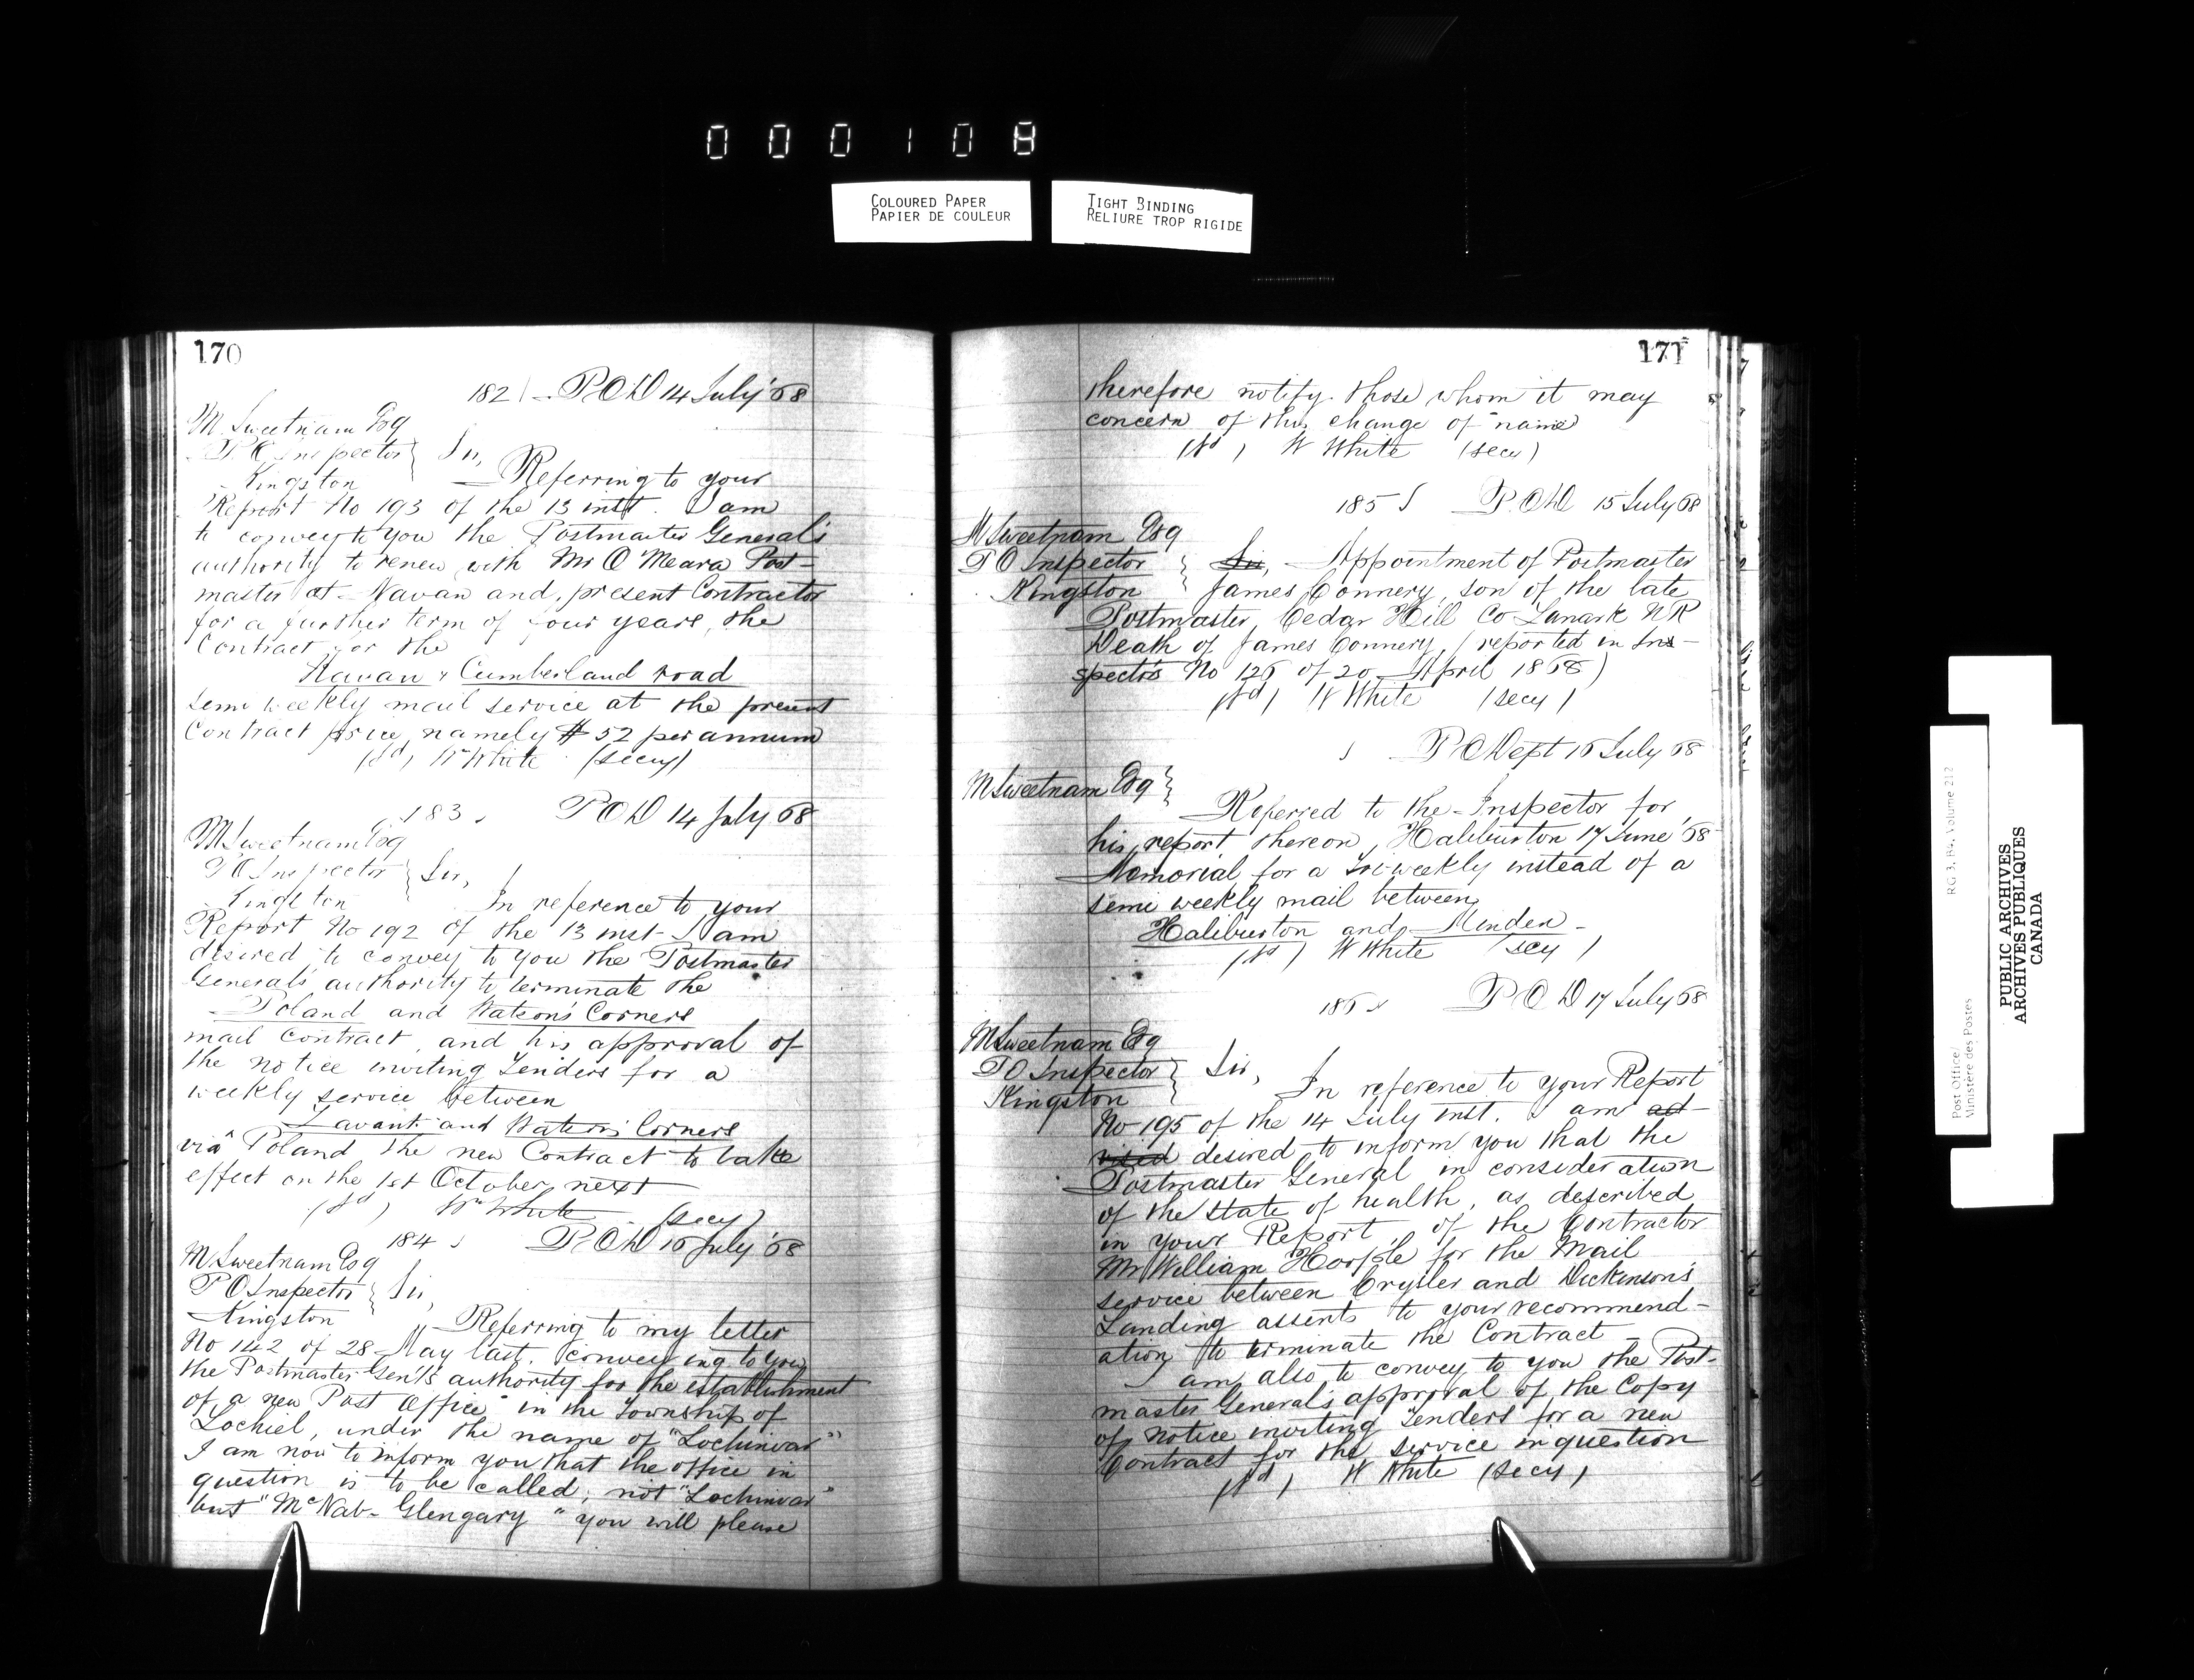 000108
COLOURED PAPER
PAPIER DE COULEUR
TIGHT BINDING
RELIURE TROP RIGIDE
170
182 P.O.D 14 July '68
M Sweetnam Esq
P O Inspector } Sir,
Kingston Referring to your
Report No 193 of the 13 inst. I am
to convey to you the Postmaster General's
authority to renew with Mr O Meara Post-
master at Navan and present Contractor
for a further term of four years, the
Contract for the
Navan & Cumberland road
semi weekly mail service at the present
Contract price, namely $52 per annum
(sd) Wm White (secy)
183 P O D 14 July 68
M Sweetnam Esq
P O Inspector } Sir,
Kingston In reference to your
Report No 192 of the 13 inst- I am
desired to convey to you the Postmaster
General's authority to terminate the
Poland and Watson's Corners
mail Contract, and his approval of
the notice inviting Tenders for a
weekly service between
Lavant and Watson's Corners
viâ Poland the new Contract to take
effect on the 1st October next
(sd) Wm White (secy)
184 P.O.D 16 July '68
M Sweetnam Esq
P O Inspector } Sir,
Kingston Referring to my letter
No 142 of 28 May last. conveying to you
the Postmaster Gen'l's authority for the establishment
of a new Post Office in the Township of
Lochiel, under the name of "Lochinvar"
I am now to inform you that the office in
question is to be called, not "Lochinvar"
but "McNab- Glengary" you will please
171
therefore notify those whom it may
concern of this change of name
(sd) W White (secy)
185 P.O.D 15 July 68
M Sweetnam Esq
P O Inspector } Sir, Appointment of Postmaster
Kingston James Connery, son of the late
Postmaster, Cedar Hill Co Lanark NR
Death of James Connery, (reported in Ins-
spector's No 126 of 20 April 1868)
(sd) W White (secy)
P O Dept 16 July 68
M Sweetnam Esq }
Referred to the Inspector for
his report thereon, Haliburton 17 June '68
Memorial for a Tri-weekly instead of a
semi weekly mail between
Haliburton and Minden -
(sd) W White (secy)
186 P.O.D 17 July 68
M Sweetnam Esq
P O Inspector } Sir,
Kingston In reference to your Report
No 195 of the 14 July inst. I am ad-
vised desired to inform you that the
Postmaster General in consideration
of the state of health, as described
in your Report, of the Contractor
Mr William Hoople for the Mail
service between Crysler and Dickinson's
Landing assents to your recommend-
ation to terminate the Contract -
I am also to convey to you the Post-
master General's approval of the Copy
of Notice inviting Tenders for a new
Contract for the service in question
(sd) W White (secy)
Post Office/
Ministère des Postes
RG 3, B4, Volume 212
PUBLIC ARCHIVES
ARCHIVES PUBLIQUES
CANADA